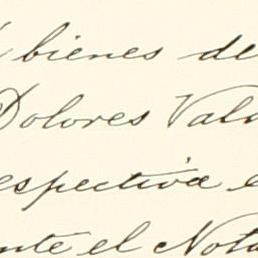 bienes de
Dolores Vald
espectiva e
nte el Nota